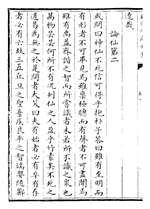 論仙第二
或問曰神仙不死信可得乎抱朴子答曰雖有至明而
有形者不可畢見焉雖稟極聰而有聲者不可盡聞焉
雖有禹益齊諧之智而所嘗識者未若所不識之衆也
萬物云云何所不有況列仙之人盈乎竹素矣不死之
道曷為無之於是問者大笑曰夫有始者必有卒有存
者必有亡故三五丘旦之聖棄疾良平之智端嬰隨酈